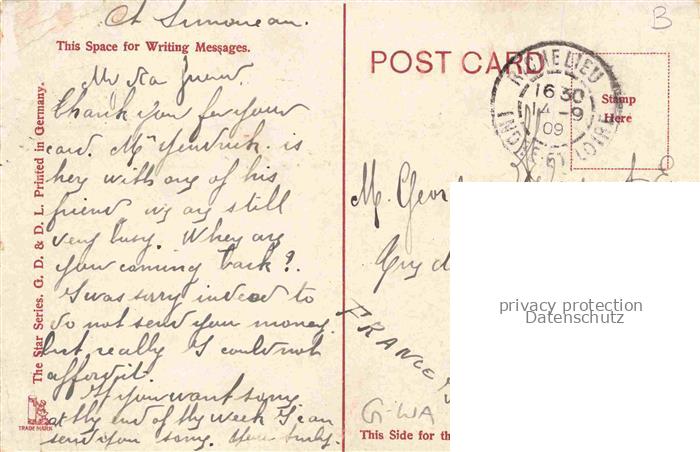 Ch Simoneau.
This Space for Writing Messages.
My Friend.
Thank you for your
card. Mr is
hey with ony of his
friend wy any still
very busy. Whey any
you coming back?
I was sorry indeed to
do not send you money
but really I could not
afford it.
If you want sony
at thy end of thy week I can
send you sony. Your
The Star Series. G. D. & D. L. Printed in Germany.
TRADE MARK
POST CARD
RICHELIEU
16 30
14 -9
09
INDRE ET LOIRE
Stamp
Here
B
M. Geor
FRANCE
G-WA
This Side for th
privacy protection
Datenschutz